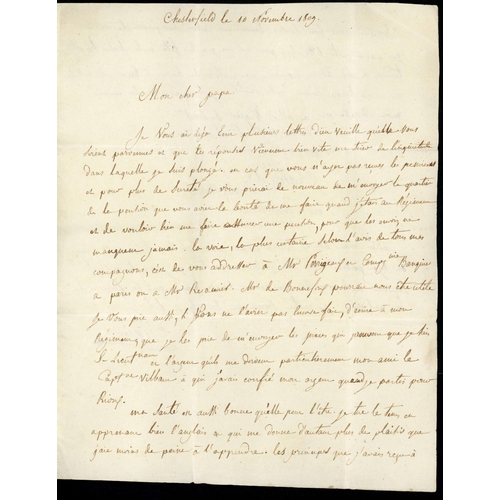 Chesterfield le 10 Novembre 1809.
Mon cher papa
Je Vous ai déja Ecrit plusieurs lettres dieu veuille qu'elles vous
soient parvenues et que tes réponses Viennent bien vite me tirer de l'inquiétude
dans laquelle je suis plongé. en cas que vous n'ayez pas reçues les premieres
et pour plus de Sureté je vous prierai de nouveau de m'envoyer le quartier
de la pension que vous avez la bonté de me faire quand j'étais au Régiment
et de vouloir bien me faire continuer une pension, pour que les moy, ne
manquent jamais. la voie, la plus certaine Selon l'avis de tous mes
compagnons, c'est de vous addresser à Mr Perrigeaux et Comp. nie Banquier
a paris ou a Mr Recamier. Mr de Bonnefoux pourrait vous être utile
Je Vous prie aussi, si Vous ne l'aviez pas encore fait, d'écrire à mon
Régiment, que je les prie de m'envoyer les pieces qui prouvent que je suis
St Lieutnant et l'argent qu'ils me doivent particulierement mon ami le
Capt ne Villeau à qui j'avais confié mon argent quand je partis pour
Rions.
ma Santé est aussi bonne qu'elle peut l'être. je tue le tems en
apprenant bien l'anglais & qui me donne d'autant plus de plaisir que
j'aie moins de peine à l'apprendre. les principes que j'avais reçu à